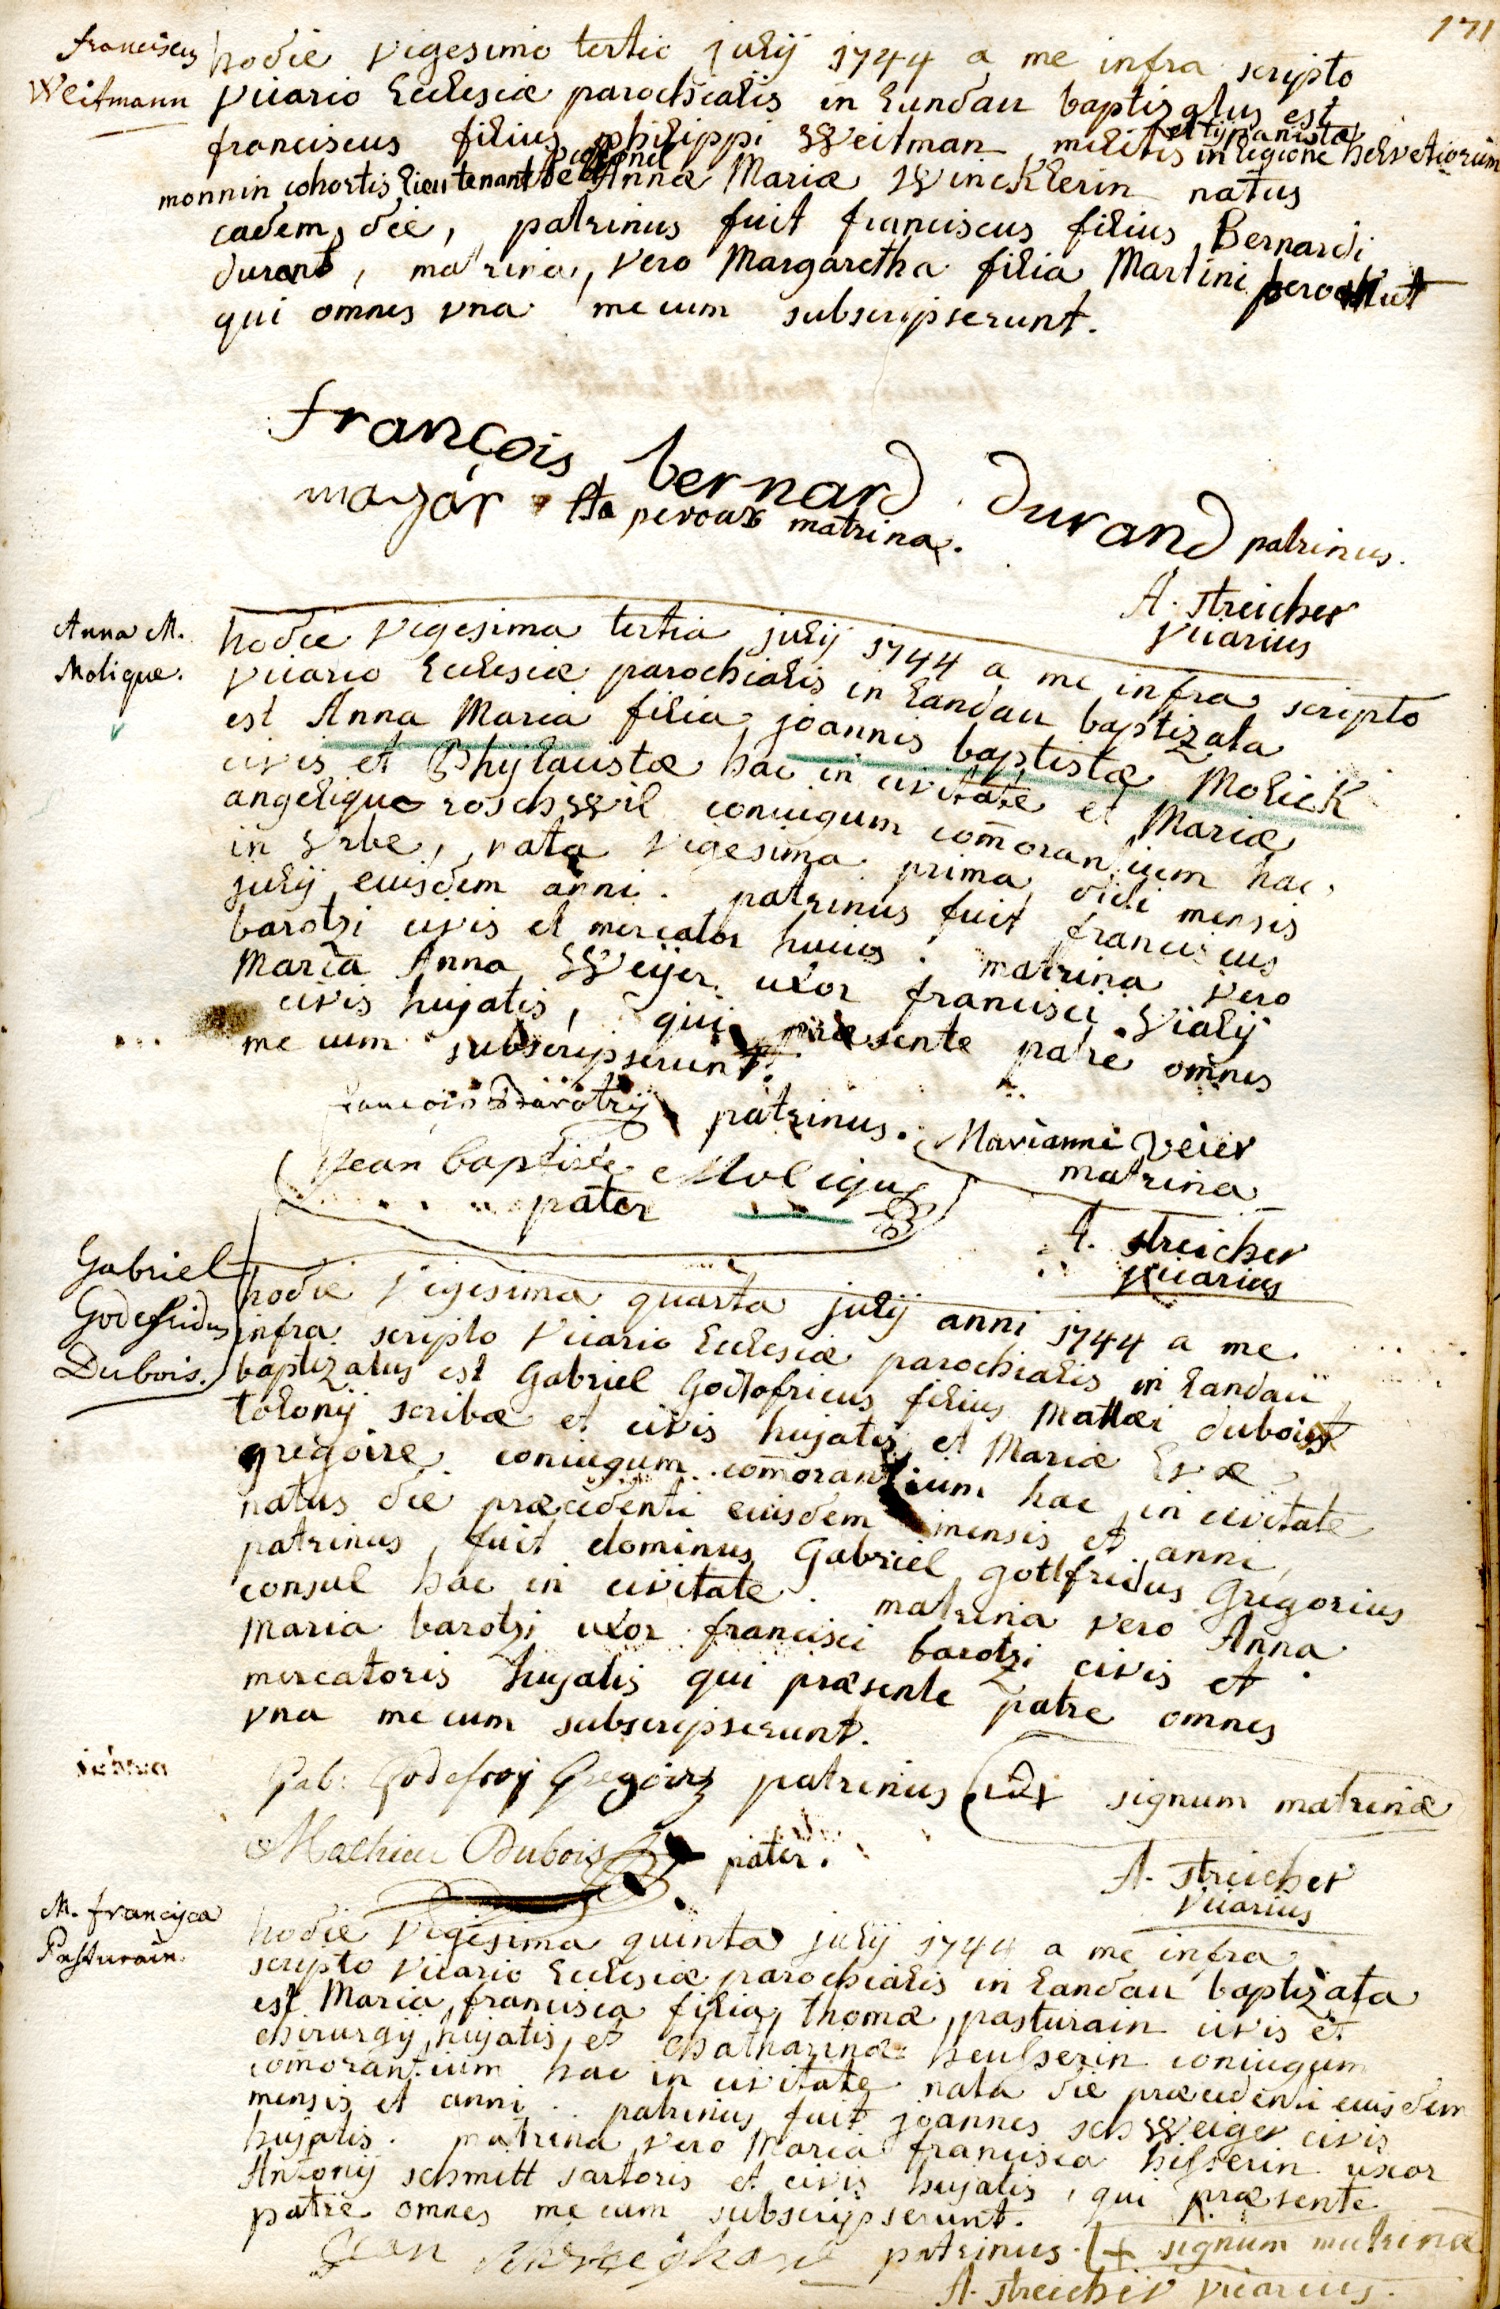 171
franciscus
Weitmann
hodie vigesimo tertio julij 1744 a me infra scripto
vicario Ecclesiæ parochialis in Landau baptizatus est
franciscus filius philippi Weitman militis et tijpanistæ in legione helvetiorum
monnin cohortis lieutenant colonel et Annæ Mariæ Wincklerin natus
eadem die, patrinus fuit franciscus filius Bernardi
durant, matrina vero Margaretha filia Martini
qui omnes vna mecum subscripserunt.
françois bernard durand patrinus.
matrina.
A. streicher
vicarius
Anna M.
Molique.
hodie vigesima tertia julij 1744 a me infra scripto
vicario Ecclesiæ parochialis in Landau baptizata
est Anna Maria filia joannis baptistæ Molick
civis et Phijlaustæ hac in civitate et Mariæ
angelique roschwil coniugum com̄orantium hac
in Vrbe, nata vigesima prima didi mensis
julij eiusdem anni. patrinus fuit franciscus
barotzi civis et mercator huius. matrina vero
Maria Anna Weijer uxor francisci Vialij
civis hujatis, qui præsente patre om̄nes
mecum subscripserunt.
francois Barotzij patrinus. Marianni Veier
matrina
Jean baptiste Molique
pater
A. streicher
vicarius
Gabriel
Godefridus
Dubois.
hodie vigesima quarta julij anni 1744 a me
infra scripto vicario Ecclesiæ parochialis in Landau
baptizatus est Gabriel Godtofricus filius Mattæi dubois
tolonij scribæ et civis hujatis et Mariæ Evæ
gregoire coniugum com̄orantium hac in civitate
natus die præcedenti eiusdem mensis et anni
patrinus fuit dominus Gabriel gottfridus Gregorius
consul hac in civitate. matrina vero Anna
Maria barotzi uxor francisci barotzi civis et
mercatoris hujatis qui præsente patre omnes
vna mecum subscripserunt.
Gab: Godefroy Gregoire patrinus + signum matrinæ
Mathieu Dubois pater.
A. streicher
vicarius
M. francisca
Pasturain.
hodie vigesima quinta julij 1744 a me infra
scripto vicario Ecclesiæ parochialis in Landau baptizata
est Maria francisca filia thomæ pasturain civis et
chirurgij hujatis et Chatharinæ heusserin coniugum
com̄orantium hac in civitate nata die præcedenti eiusdem
mensis et anni. patrinus fuit joannes schweiger civis
hujatis. matrina vero Maria francisca hisserin uxor
Antonij schmitt sartoris et civis hujatis, qui præsente
patre omnes mecum subscripserunt.
Jean patrinus. + signum matrinæ
A. streicher vicarius.